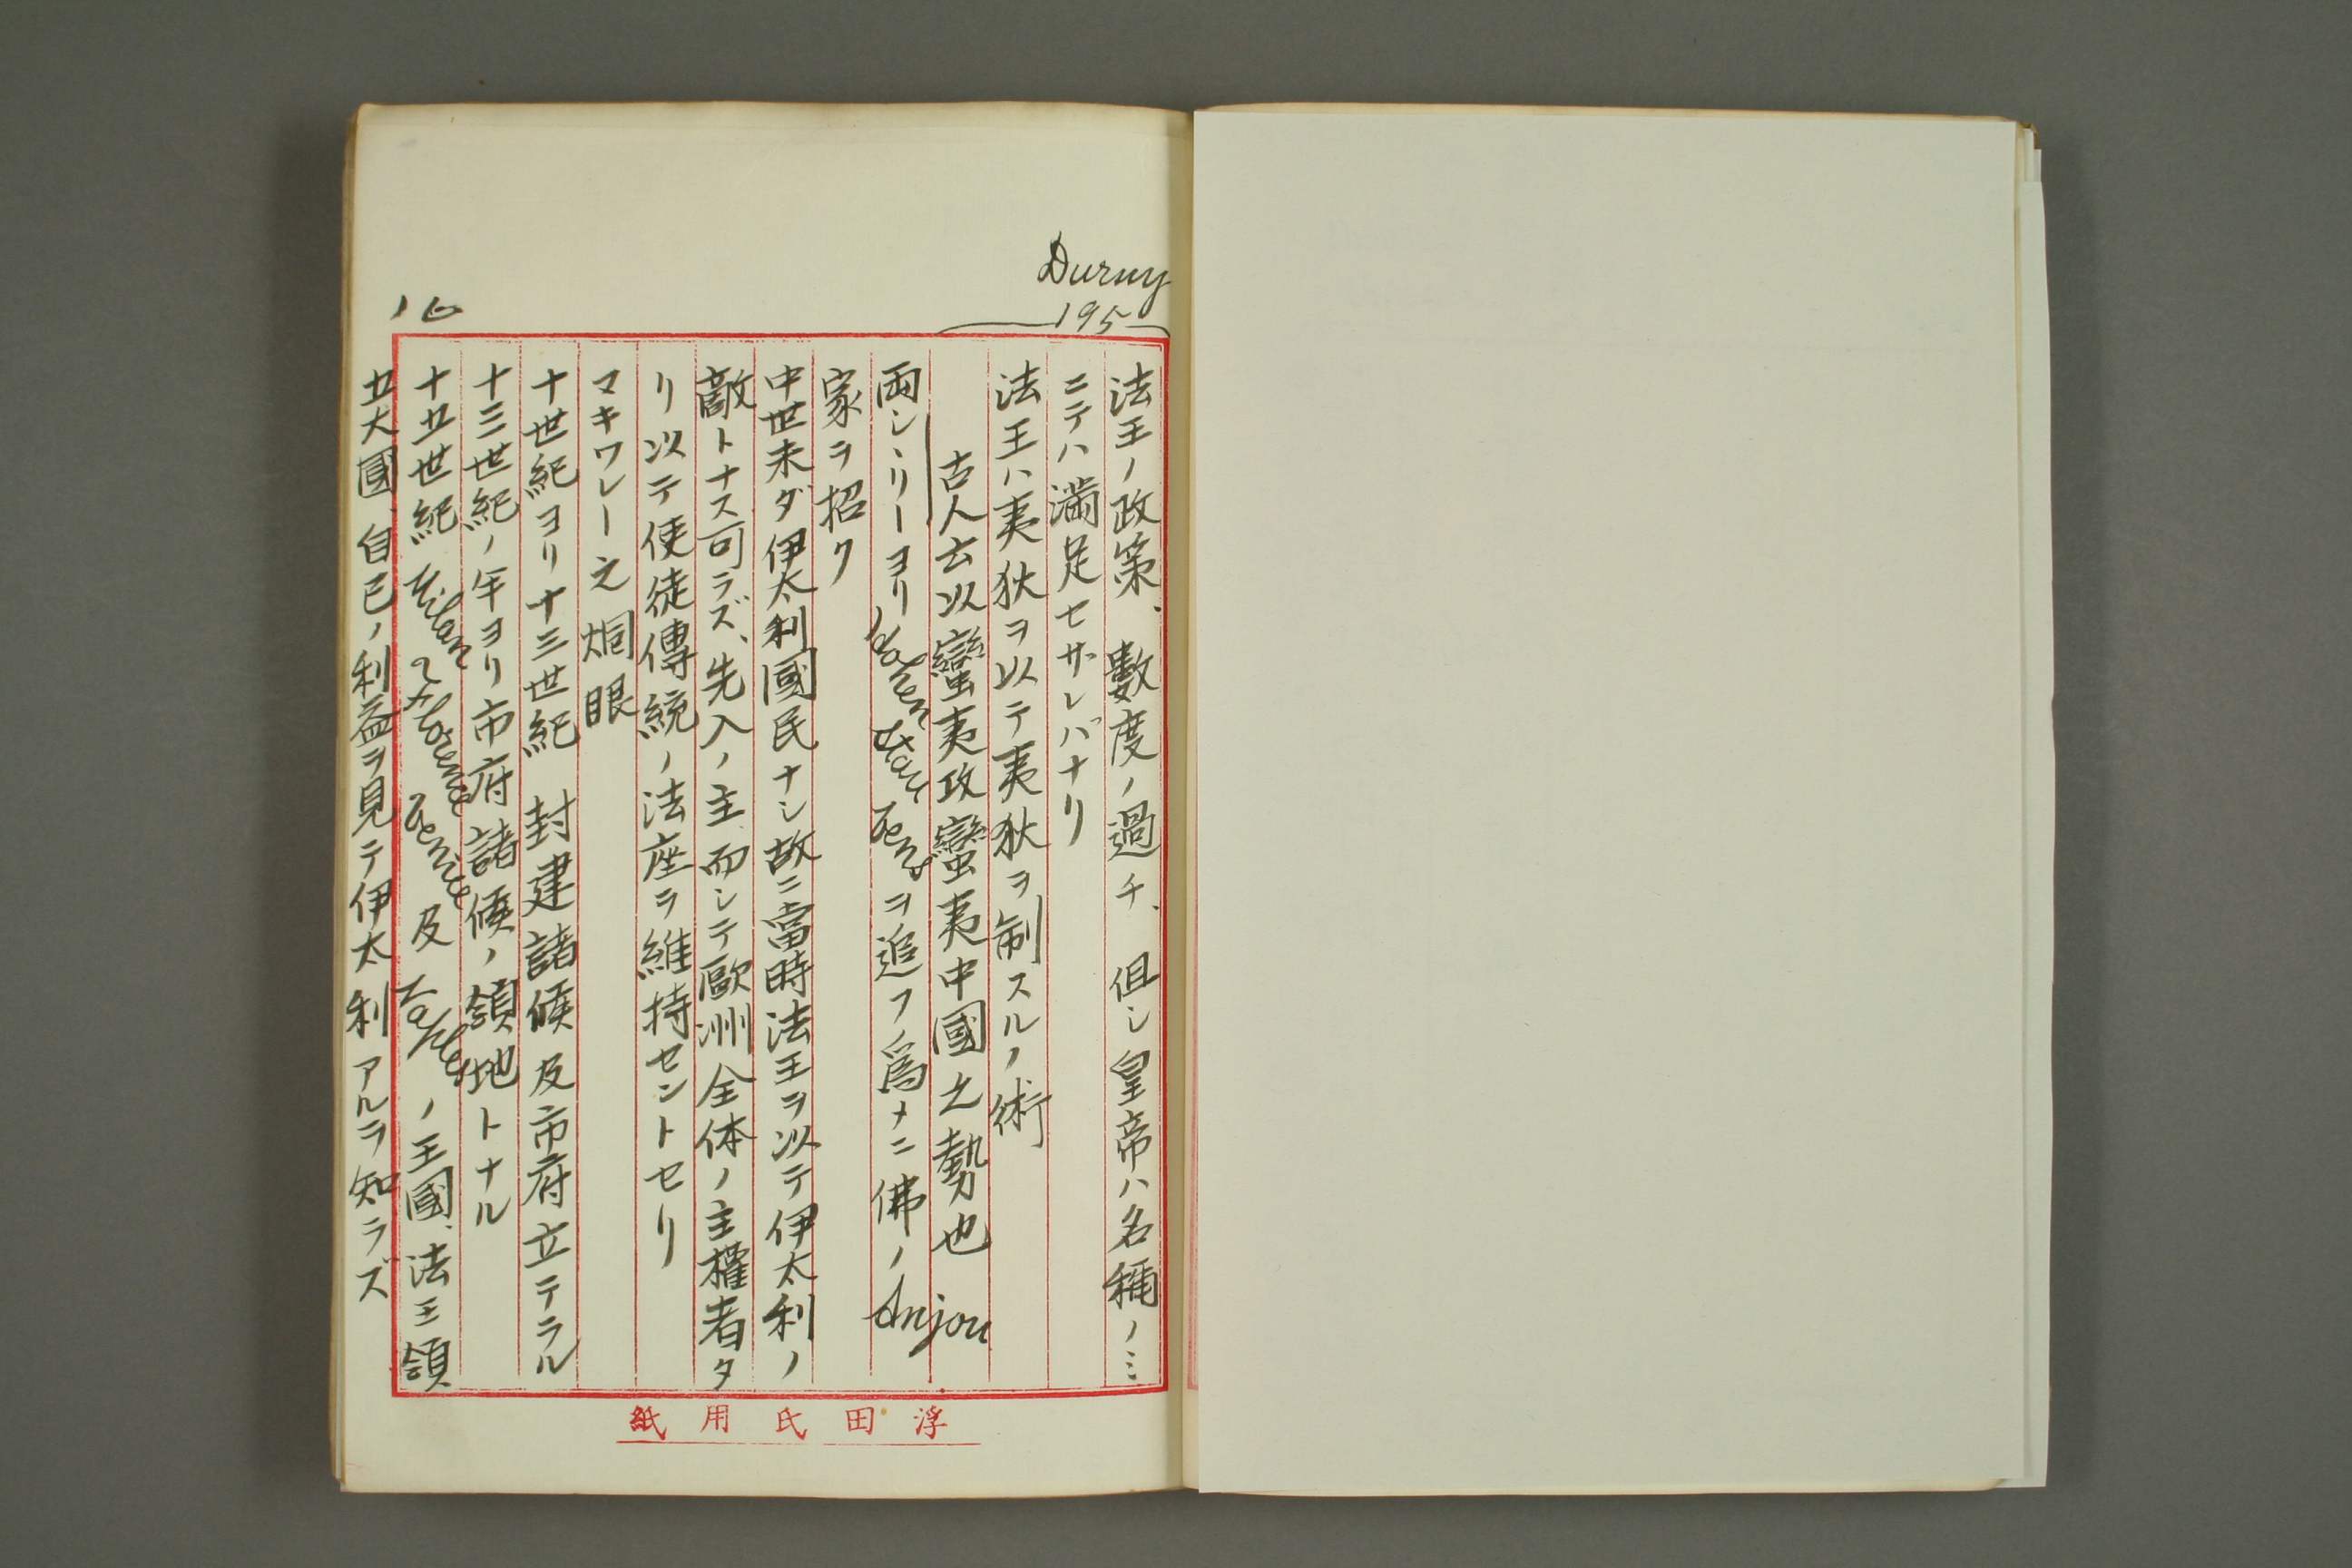 Duruy
195
法王ノ政策、數度ノ過チ、但シ皇帝ハ名稱ノミ
ニテハ滿足セザレバナリ
法王ハ夷狄ヲ以テ夷狄ヲ制スルノ術
古人云以蠻夷攻蠻夷中國之勢也
両シヽリーヨリ Hohenstaufens ヲ追フノ爲メニ佛ノ Anjou
家ヲ招ク
中世未ダ伊太利國民ナシ故ニ當時法王ヲ以テ伊太利ノ
敵トナス可ラズ、先入ノ主、而シテ歐洲全体ノ主權者タ
リ以テ使徒傳統ノ法座ヲ維持セントセリ
マキワレー之烱眼
十世紀ヨリ十三世紀 封建諸侯及市府立テラル
十三世紀ノ年ヨリ市府諸侯ノ領地トナル
十五世紀 Milan Florence Venice 及 Naples ノ王國、法王領
五大國、自己ノ利益ヲ見テ伊太利アルヲ知ラズ
16
浮田氏用紙